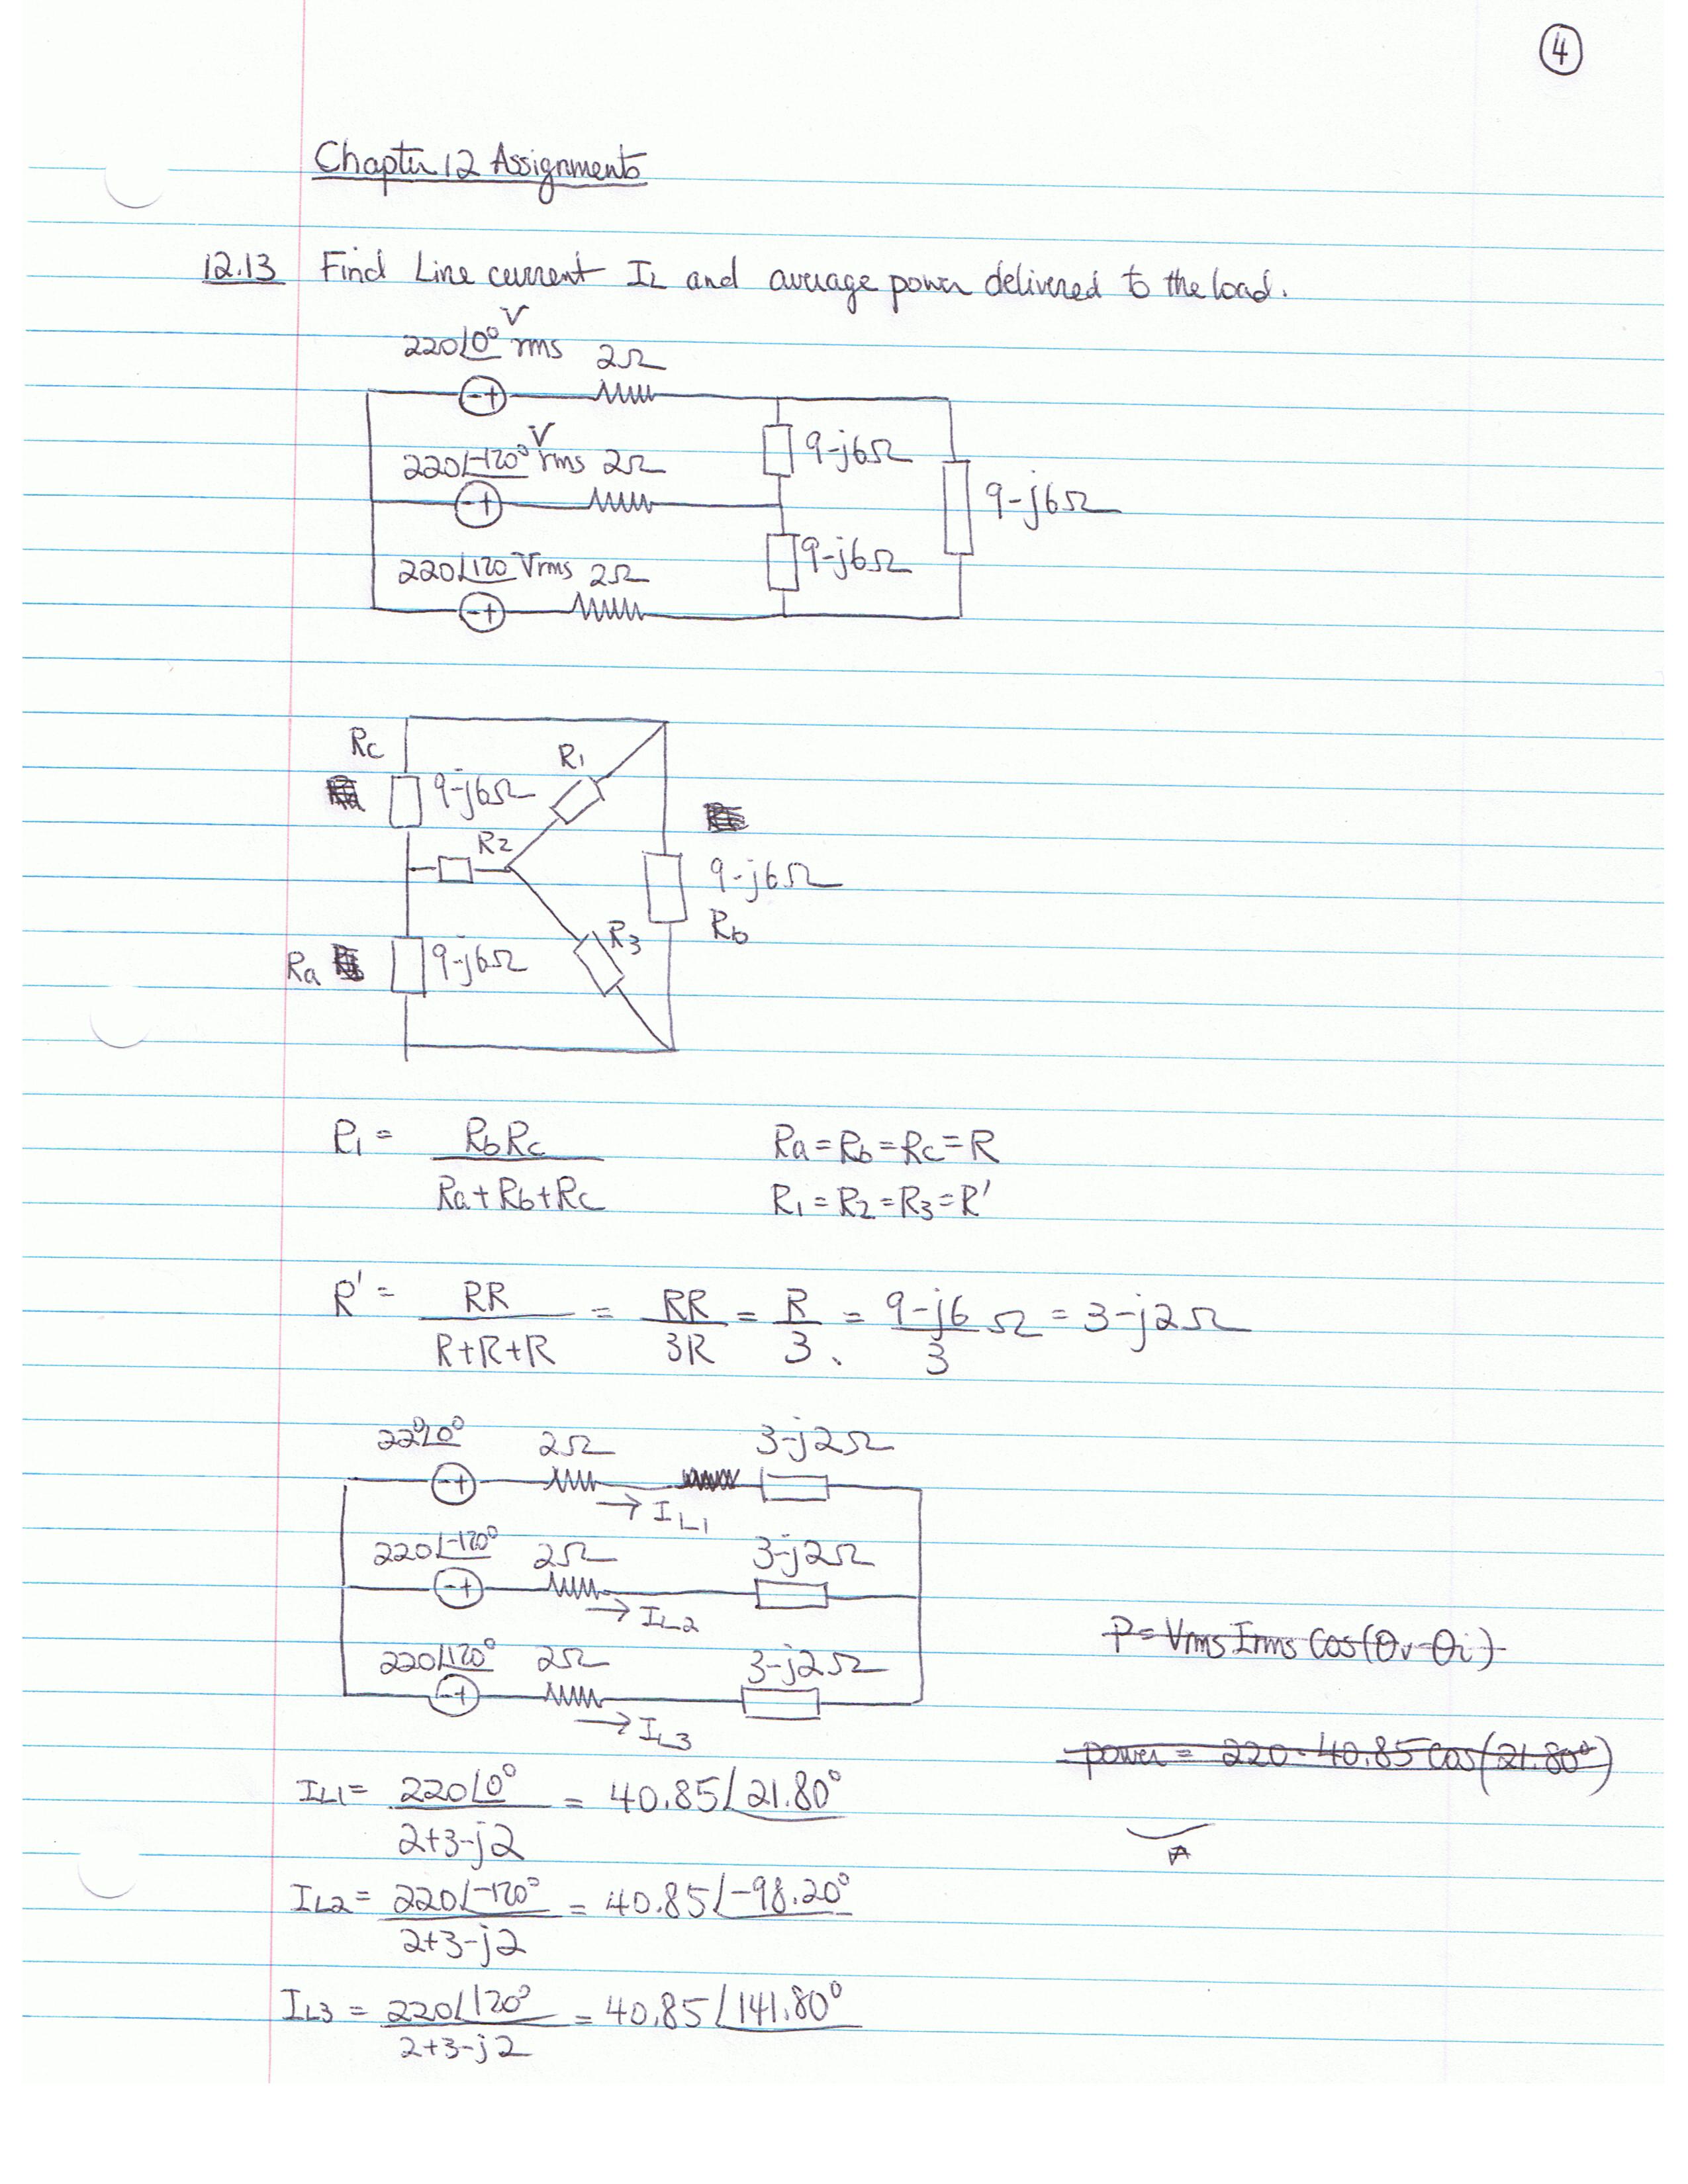 4
Chapter 12 Assignments
12.13 Find Line current IL and average power delivered to the load.
220∠0° V rms 2Ω
9-j6Ω
220∠-120° V rms 2Ω
9-j6Ω
9-j6Ω
220∠120 Vrms 2Ω
Rc
R1
9-j6Ω
R2
9-j6Ω
Rb
R3
Ra 9-j6Ω
R1 = RbRc / Ra+Rb+Rc Ra=Rb=Rc=R
R1=R2=R3=R'
R' = RR / R+R+R = RR / 3R = R / 3 = 9-j6 / 3 Ω = 3-j2Ω
220∠0° 2Ω 3-j2Ω
→ IL1
220∠-120° 2Ω 3-j2Ω
→ IL2
P=VrmsIrms Cos(θv-θi)
220∠120° 2Ω 3-j2Ω
→ IL3
power = 220·40.85 cos(21.80°)
IL1= 220∠0° / 2+3-j2 = 40.85∠21.80°
IL2= 220∠-120° / 2+3-j2 = 40.85∠-98.20°
IL3 = 220∠120° / 2+3-j2 = 40.85∠141.80°